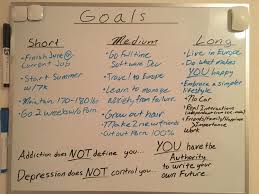 Goals
Short
-Finish Sure@
Current Job
-Start Summer
w/7k
-Maintain 170-180lbs
-Go 2 weeks w/o Porn
Medium
-Go Full time
Software Dev
-Travel to Europe
-Learn to manage
anxiety from failure
-Grow out hair
-Make 2 new friends
-Cut out Porn 100%
Long
-Live in Europe
-Do what makes
YOU happy
-Embrace a simpler
lifestyle
No Car
Real Interactions
Friends/Family/Happiness
Importance
Work
Addiction does NOT define you...
Depression does NOT control you...
YOU have the
Authority
to write your
own Future.